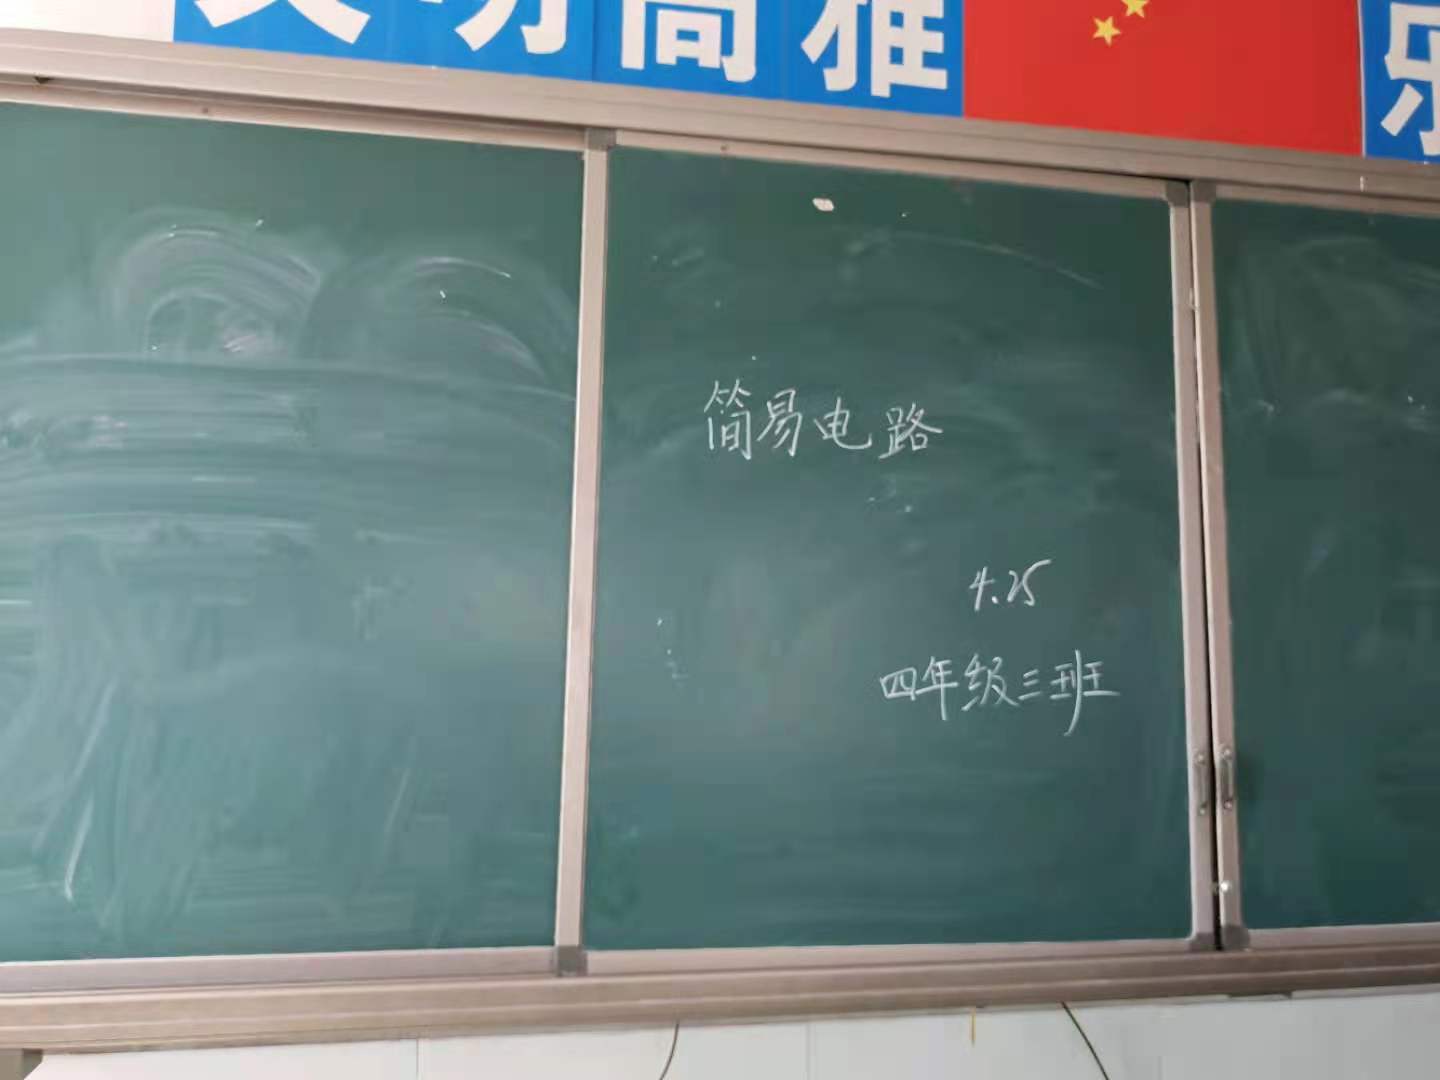 文明高雅
乐
简易电路
4.25
四年级三班